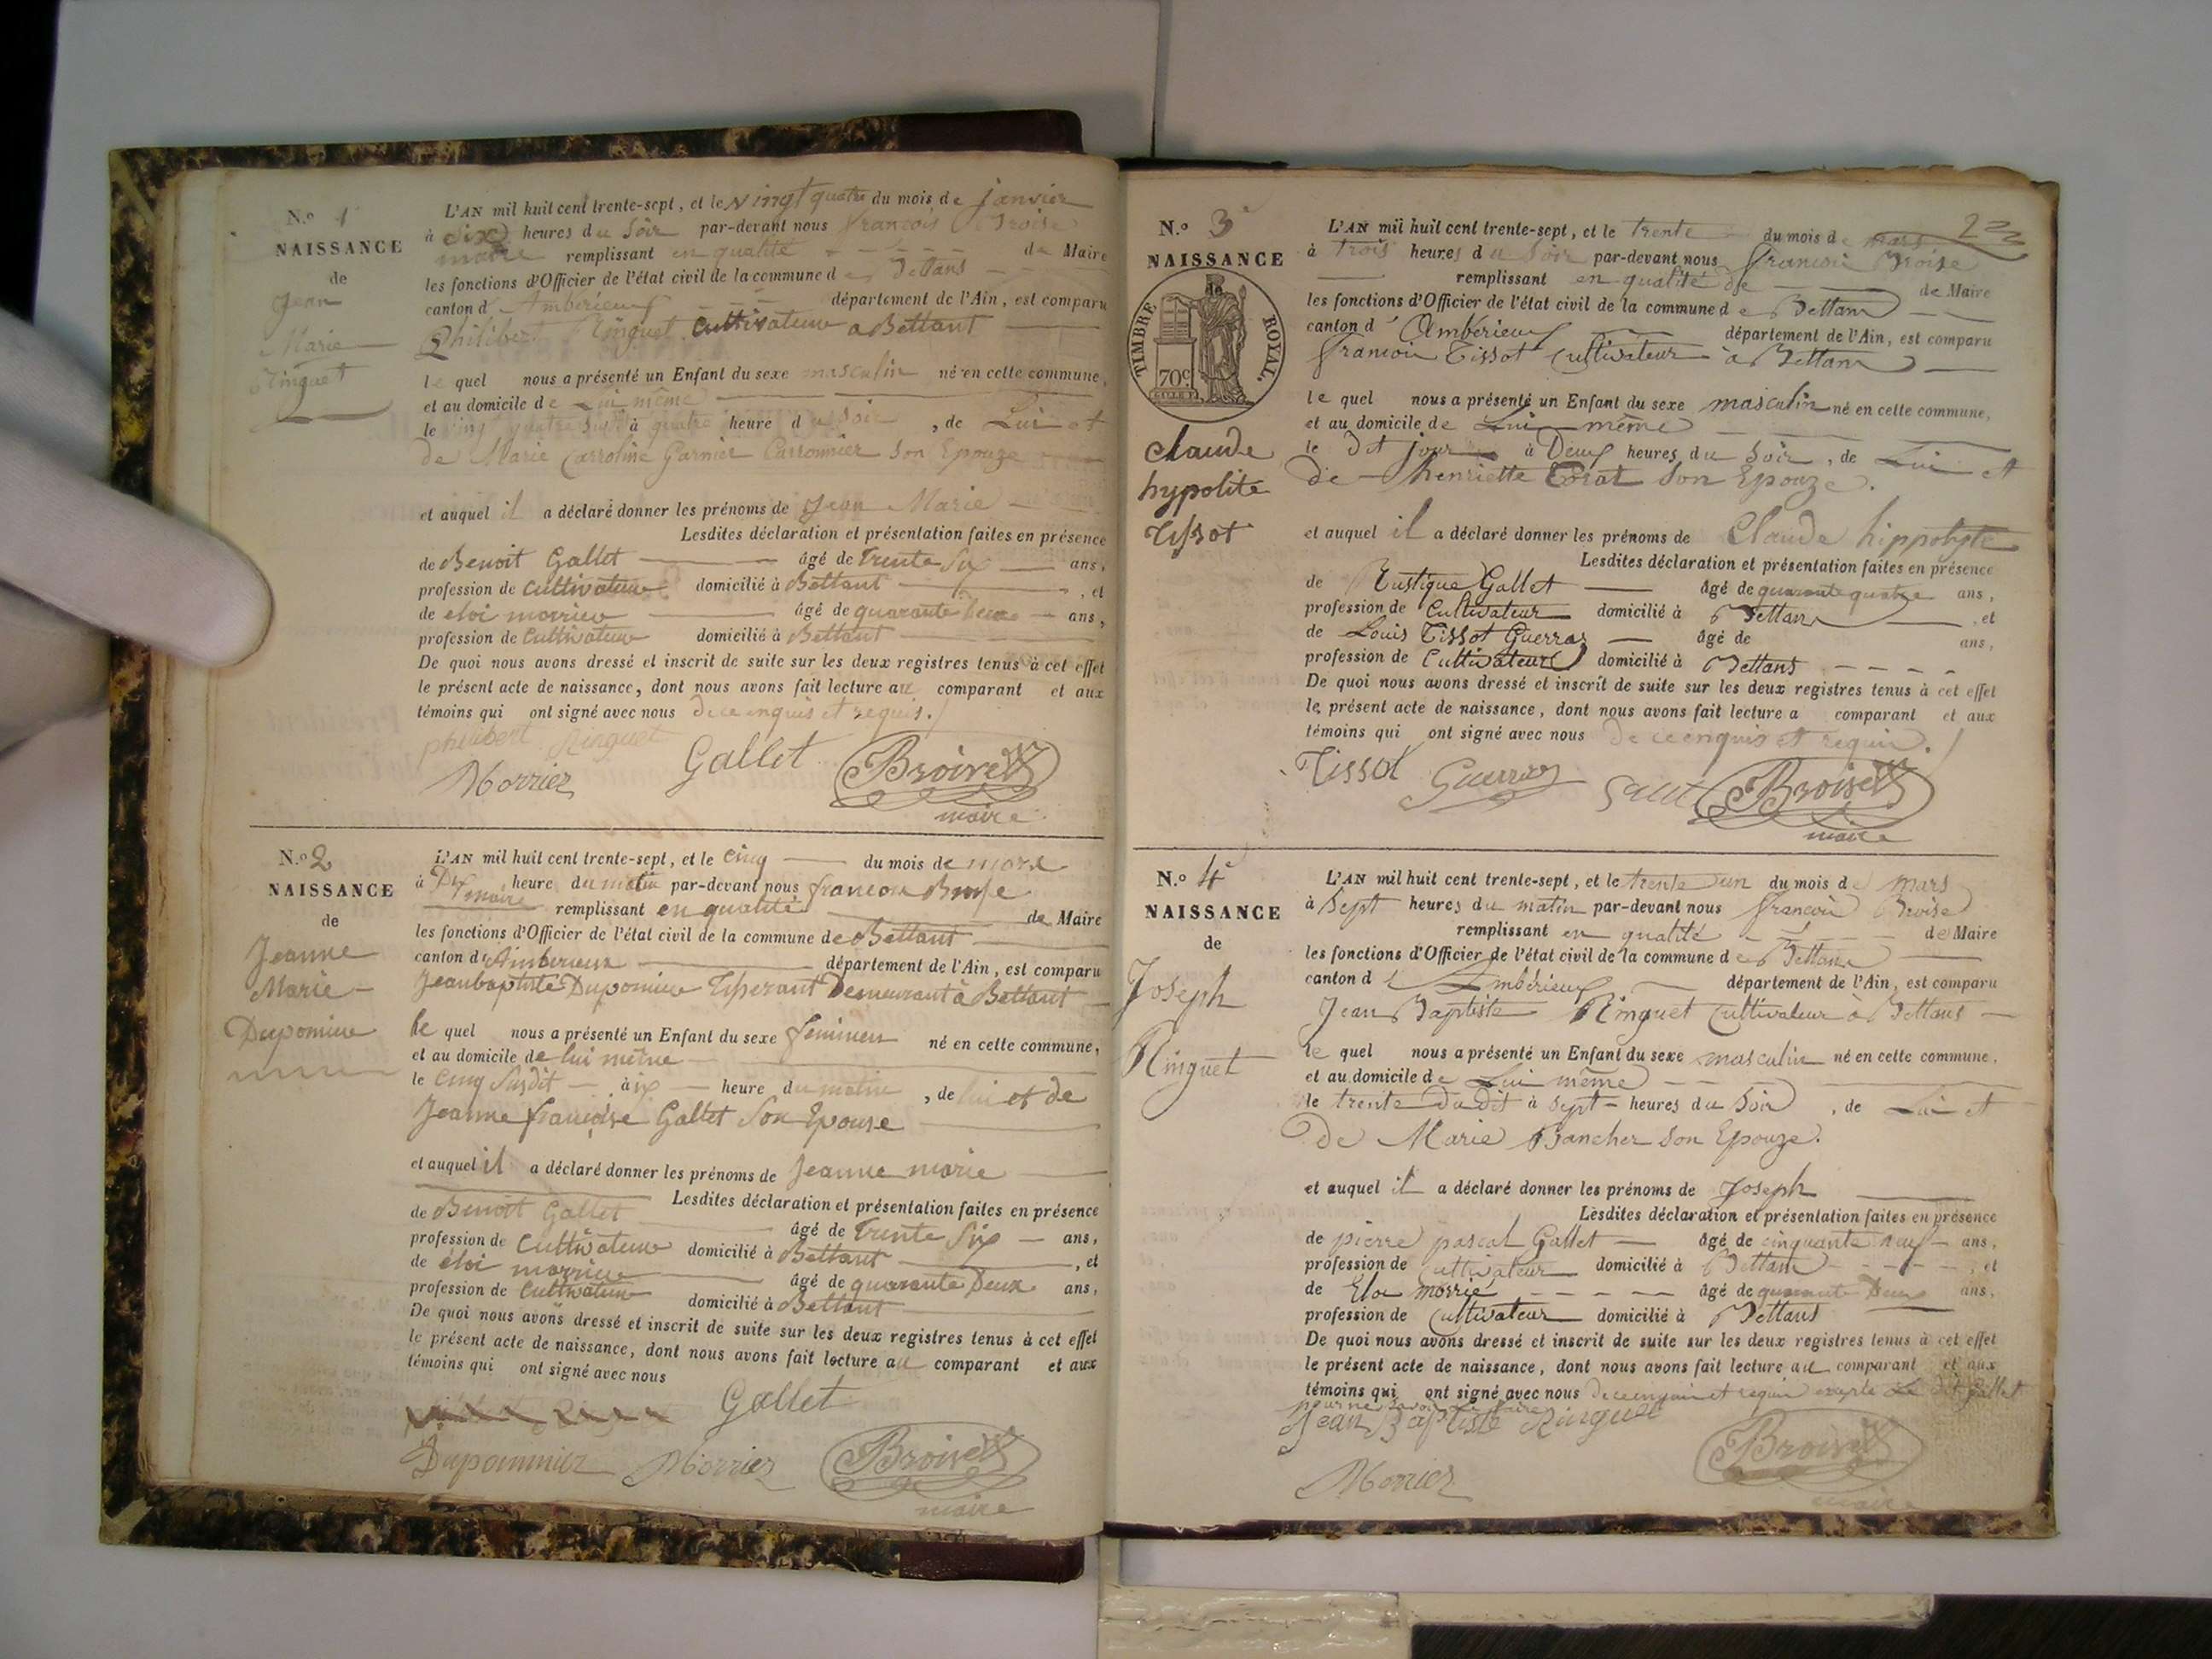 N.o 1
NAISSANCE
de
Jean
Marie
Ringuet
L'AN mil huit cent trente-sept, et le vingt quatre du mois de janvier
à Six heures du Soir par-devant nous francois Broise
maire remplissant en qualité de Maire
les fonctions d'Officier de l'état civil de la commune de Bettans
canton d'Amberieux département de l'Ain, est comparu
Philibert Ringuet cultivateur a Bettant
le quel nous a présenté un Enfant du sexe masculin né en cette commune,
et au domicile de Lui même
le vingt quatre susdit à quatre heure du soir, de Lui et
de Marie Carroline Garnier Carronnier Son Epouze
et auquel il a déclaré donner les prénoms de Jean Marie
Lesdites déclaration et présentation faites en présence
de Benoit Gallet âgé de trente Six ans,
profession de cultivateur domicilié à Bettant, et
de eloi morrier âgé de quarante deux ans,
profession de Cultivateur domicilié à Bettant
De quoi nous avons dressé et inscrit de suite sur les deux registres tenus à cet effet
le présent acte de naissance, dont nous avons fait lecture au comparant et aux
témoins qui ont signé avec nous de ce enquis et requis.
philibert Ringuet
Morrier Gallet Broise
maire
N.o 2
NAISSANCE
de
Jeanne
Marie
Dupomier
L'AN mil huit cent trente-sept, et le cinq du mois de mars
à Dix heure du matin par-devant nous francois Broise
maire remplissant en qualité de Maire
les fonctions d'Officier de l'état civil de la commune de Bettant
canton d'Amberieux département de l'Ain, est comparu
Jeanbaptiste Dupomier Tisserant Demeurant à Bettant
le quel nous a présenté un Enfant du sexe feminen né en cette commune,
et au domicile de lui même
le cinq Susdit à six heure du matin, de lui et de
Jeanne françoise Gallet Son Epouse
et auquel il a déclaré donner les prénoms de Jeanne marie
Lesdites déclaration et présentation faites en présence
de Benoit Gallet âgé de trente Six ans,
profession de cultivateur domicilié à Bettant, et
de éloi morrier âgé de quarante Deux ans,
profession de Cultivateur domicilié à Bettant
De quoi nous avons dressé et inscrit de suite sur les deux registres tenus à cet effet
le présent acte de naissance, dont nous avons fait lecture au comparant et aux
témoins qui ont signé avec nous
Gallet
Dupommier Morrier Broise
maire
2
N.o 3
NAISSANCE
TIMBRE ROYAL.
70c
Claude
hypolite
Tissot
L'AN mil huit cent trente-sept, et le trente du mois de mars
à trois heures du Soir par-devant nous francois Broise
remplissant en qualité de de Maire
les fonctions d'Officier de l'état civil de la commune de Bettans
canton d'Ambérieux département de l'Ain, est comparu
francois Tissot Cultivateur à Bettans
le quel nous a présenté un Enfant du sexe masculin né en cette commune,
et au domicile de Lui même
le dit jour à Deux heures du Soir, de Lui et
de henriette Son Epouze.
et auquel il a déclaré donner les prénoms de Claude hippolyte
Lesdites déclaration et présentation faites en présence
de Rustique Gallet âgé de quarante quatre ans,
profession de Cultivateur domicilié à Bettans, et
de Louis Tissot Guerraz âgé de ans,
profession de Cultivateur domicilié à Bettans
De quoi nous avons dressé et inscrit de suite sur les deux registres tenus à cet effet
le présent acte de naissance, dont nous avons fait lecture a comparant et aux
témoins qui ont signé avec nous De ce enquis et requis.
Tissot Guerraz Broise
maire
N.o 4
NAISSANCE
de
Joseph
Ringuet
L'AN mil huit cent trente-sept, et le trente un du mois de mars
à Sept heures du matin par-devant nous francois Broise
remplissant en qualité de Maire
les fonctions d'Officier de l'état civil de la commune de Bettans
canton d'Ambérieux département de l'Ain, est comparu
Jean Baptiste Ringuet Cultivateur à Bettans
le quel nous a présenté un Enfant du sexe masculin né en cette commune,
et au domicile de Lui même
le trente Du dit à Sept heures du Soir, de Lui et
De Marie Bancher Son Epouze.
et auquel il a déclaré donner les prénoms de Joseph
Lesdites déclaration et présentation faites en présence
de pierre pascal Gallet âgé de cinquante neuf ans,
profession de Cultivateur domicilié à Bettans, et
de Eloi morrié âgé de quarante Deux ans,
profession de Cultivateur domicilié à Bettans
De quoi nous avons dressé et inscrit de suite sur les deux registres tenus à cet effet
le présent acte de naissance, dont nous avons fait lecture au comparant et aux
témoins qui ont signé avec nous De ce enquis et requis excepte Le dit Gallet
pour ne savoir le faire
Jean Baptiste Ringuet
Morrier Broise
maire